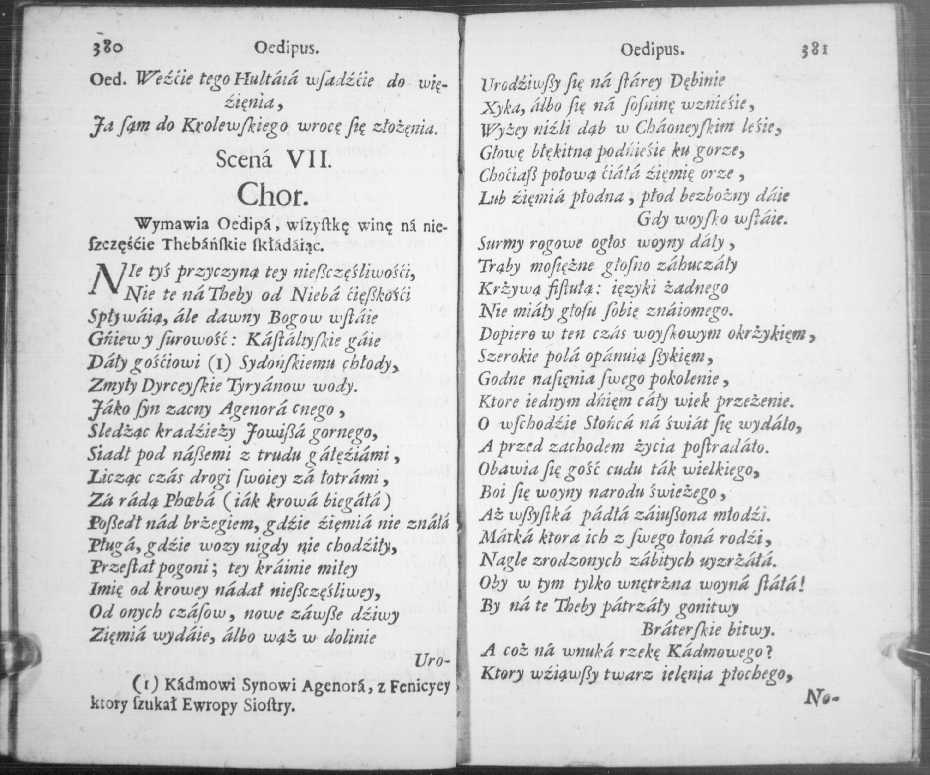 380 Oedipus.
Oed. Weźćie tego Hultáiá wſadźćie do wię-
źięnia,
Ja ſąm do Krolewſkiego wrocę ſię złożęnia.
Scená VII.
Chor.
Wymawia Oedipá, wſzyſtkę winę ná nie-
ſzczęśćie Thebáńſkie ſkłádáiąc.
NIe tyś przyczyną tey nießczęśliwośći,
Nie te ná Theby od Niebá ćięſzkośći
Spływáią, ále dawny Bogow wſtáie
Gniewy ſurowość: Káſtáltyſkie gáie
Dáły gośćiowi (1) Sydońſkiemu chłody,
Zmyły Dyrceyſkie Tyryánow wody.
Jáko ſyn zacny Agenorá cnego,
Sledźąc kradźieży Jowißá gornego,
Siadł pod náßemi z trudu gáłęźiámi,
Licząc czás drogi ſwoiey zá łotrámi,
Zá rádą Phœbá (iák krowá biegáłá)
Poßedł nád brzegiem, gdźie źięmiá nie znáłá
Pługá, gdźie wozy nigdy nie chodźiły,
Przeſtał pogoni; tey kráinie miłey
Imię od krowey nádał nießczęśliwey,
Od onych czáſow, nowe záwße dźiwy
Zięmiá wydáie, álbo wąż w dolinie
Uro-
(1) Kádmowi Synowi Agenorá, z Fenicyey
ktory ſzukał Ewropy Sioſtry.
Oedipus. 381
Urodźiwßy ſię ná ſtárey Dębinie
Xyka, álbo ſię ná ſoſninę wznieśie,
Wyżey niźli dąb w Cháoneyſkim leśie,
Głowę błękitną podnieśie ku gorze,
Choćiaß połową ćiáłá źięmię orze,
Lub źięmiá płodna, płod bezbożny dáie
Gdy woyſko wſtáie.
Surmy rogowe ogłos woyny dáły,
Trąby moſiężne głoſno záhuczáły
Krżywą fiſtułą: ięzyki żadnego
Nie miáły głoſu ſobie znáiomego.
Dopiero w ten czás woyſkowym okrżykięm,
Szerokie polá opánuią ßykięm,
Godne naſięnia ſwego pokolenie,
Ktore iednym dńięm cáły wiek przeżenie.
O wſchodźie Słońcá ná świát ſię wydáło,
A przed zachodem życia poſtradáło.
Obawia ſię gość cudu ták wielkiego,
Boi ſię woyny narodu świeżego,
Aż wßyſtká pádłá záiußona młodźi.
Mátká ktora ich z ſwego łoná rodźi,
Nagle zrodzonych zábitych uyzrżáłá.
Oby w tym tylko wnętrżna woyná ſtáłá!
By ná te Theby pátrzáły gonitwy
Bráterſkie bitwy.
A coż ná wnuká rzekę Kádmowego?
Ktory wźiąwßy twarz ielęnia płochego,
No-